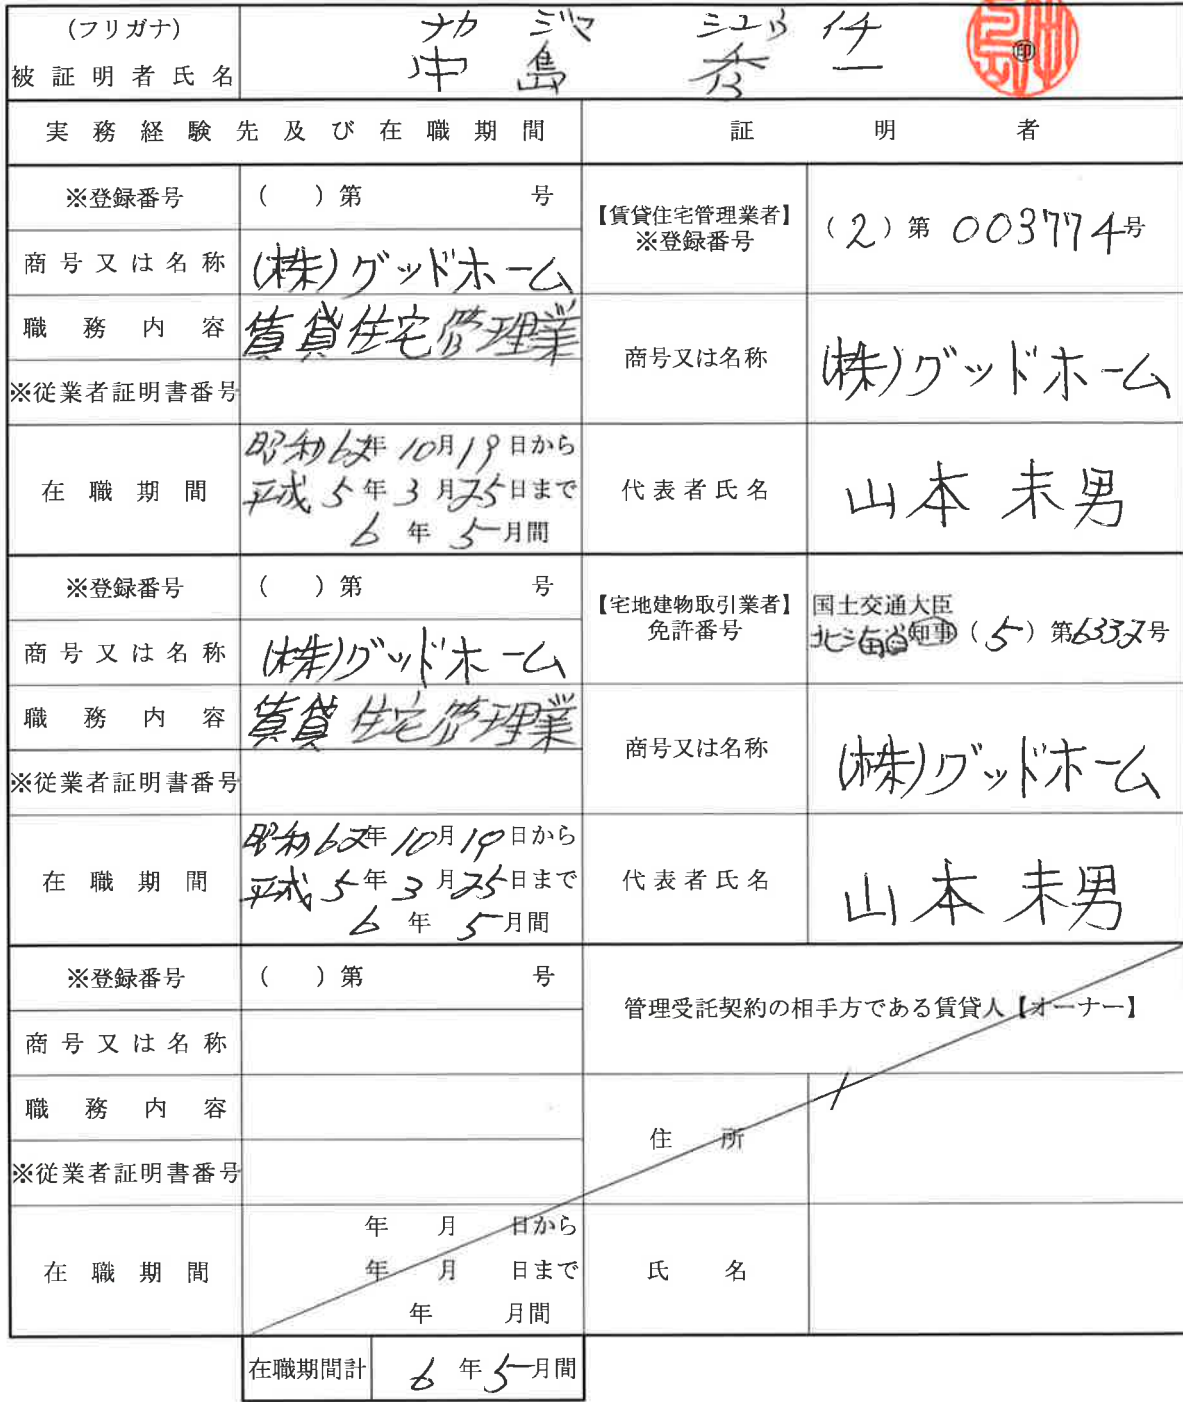 (フリガナ)
ナカ ジマ シュウ イチ
被証明者氏名
中島 秀一
㊞
実務経験先及び在職期間
証明者
※登録番号
( )第 号
商号又は名称
(株)グッドホーム
職務内容
賃貸住宅管理業
※従業者証明書番号
在職期間
昭和62年10月19日から
平成5年3月25日まで
6年5月間
【賃貸住宅管理業者】
※登録番号
(2)第003774号
商号又は名称
(株)グッドホーム
代表者氏名
山本 未男
※登録番号
( )第 号
商号又は名称
(株)グッドホーム
職務内容
賃貸住宅管理業
※従業者証明書番号
在職期間
昭和62年10月19日から
平成5年3月25日まで
6年5月間
【宅地建物取引業者】
免許番号
国土交通大臣
北海道知事(5)第6332号
商号又は名称
(株)グッドホーム
代表者氏名
山本 未男
※登録番号
( )第 号
商号又は名称
職務内容
※従業者証明書番号
在職期間
年 月 日から
年 月 日まで
年 月間
管理受託契約の相手方である賃貸人【オーナー】
住所
氏名
在職期間計
6年5月間